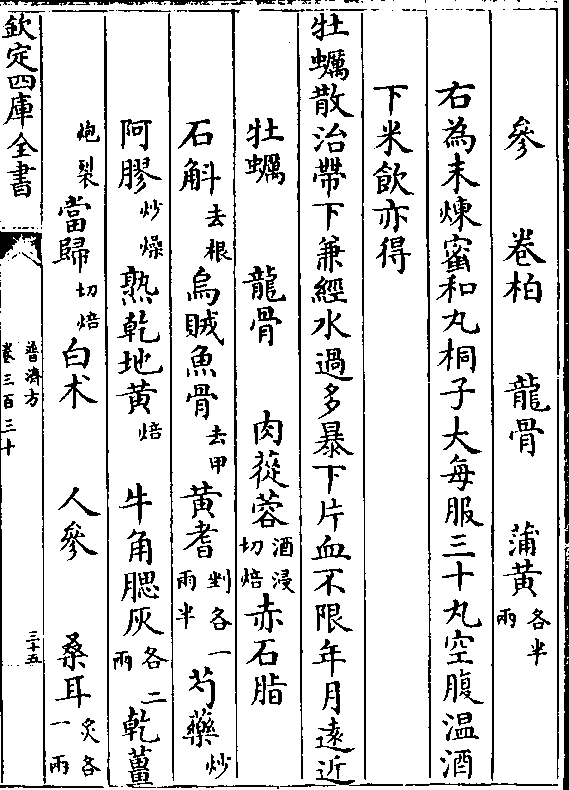 參　卷柏　龍骨　蒲黃各半兩
右為末煉蜜和丸桐子大每服三十丸空腹溫酒
下米飲亦得
牡蠣散治帶下兼經水過多暴下片血不限年月遠近
牡蠣　龍骨　肉蓯蓉酒浸切焙赤石脂
石斛去根烏賊魚骨去甲黃耆剉各一兩半芍藥炒
阿膠炒燥熟乾地黃焙牛角腮灰各二兩乾薑
炮裂當歸切焙白术　人參　桑耳炙各一兩
欽定四庫全書
普濟方
卷三百三十
三十五